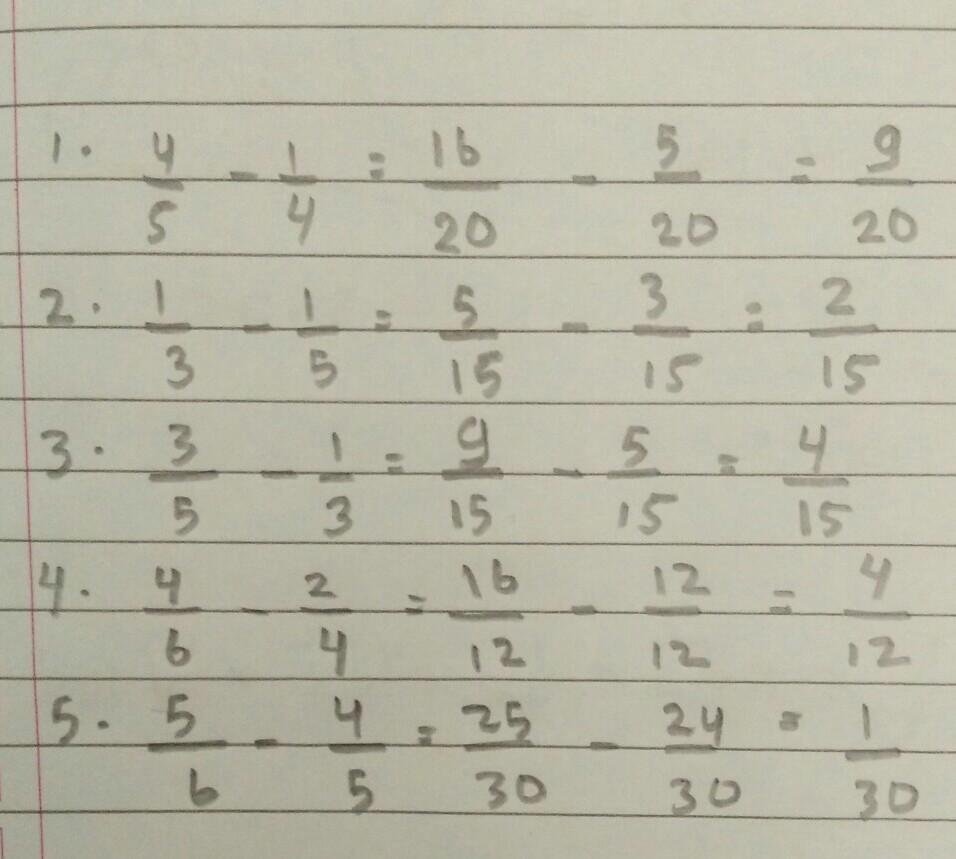 1. 4/5 - 1/4 = 16/20 - 5/20 = 9/20
2. 1/3 - 1/5 = 5/15 - 3/15 = 2/15
3. 3/5 - 1/3 = 9/15 - 5/15 = 4/15
4. 4/6 - 2/4 = 16/12 - 12/12 = 4/12
5. 5/6 - 4/5 = 25/30 - 24/30 = 1/30